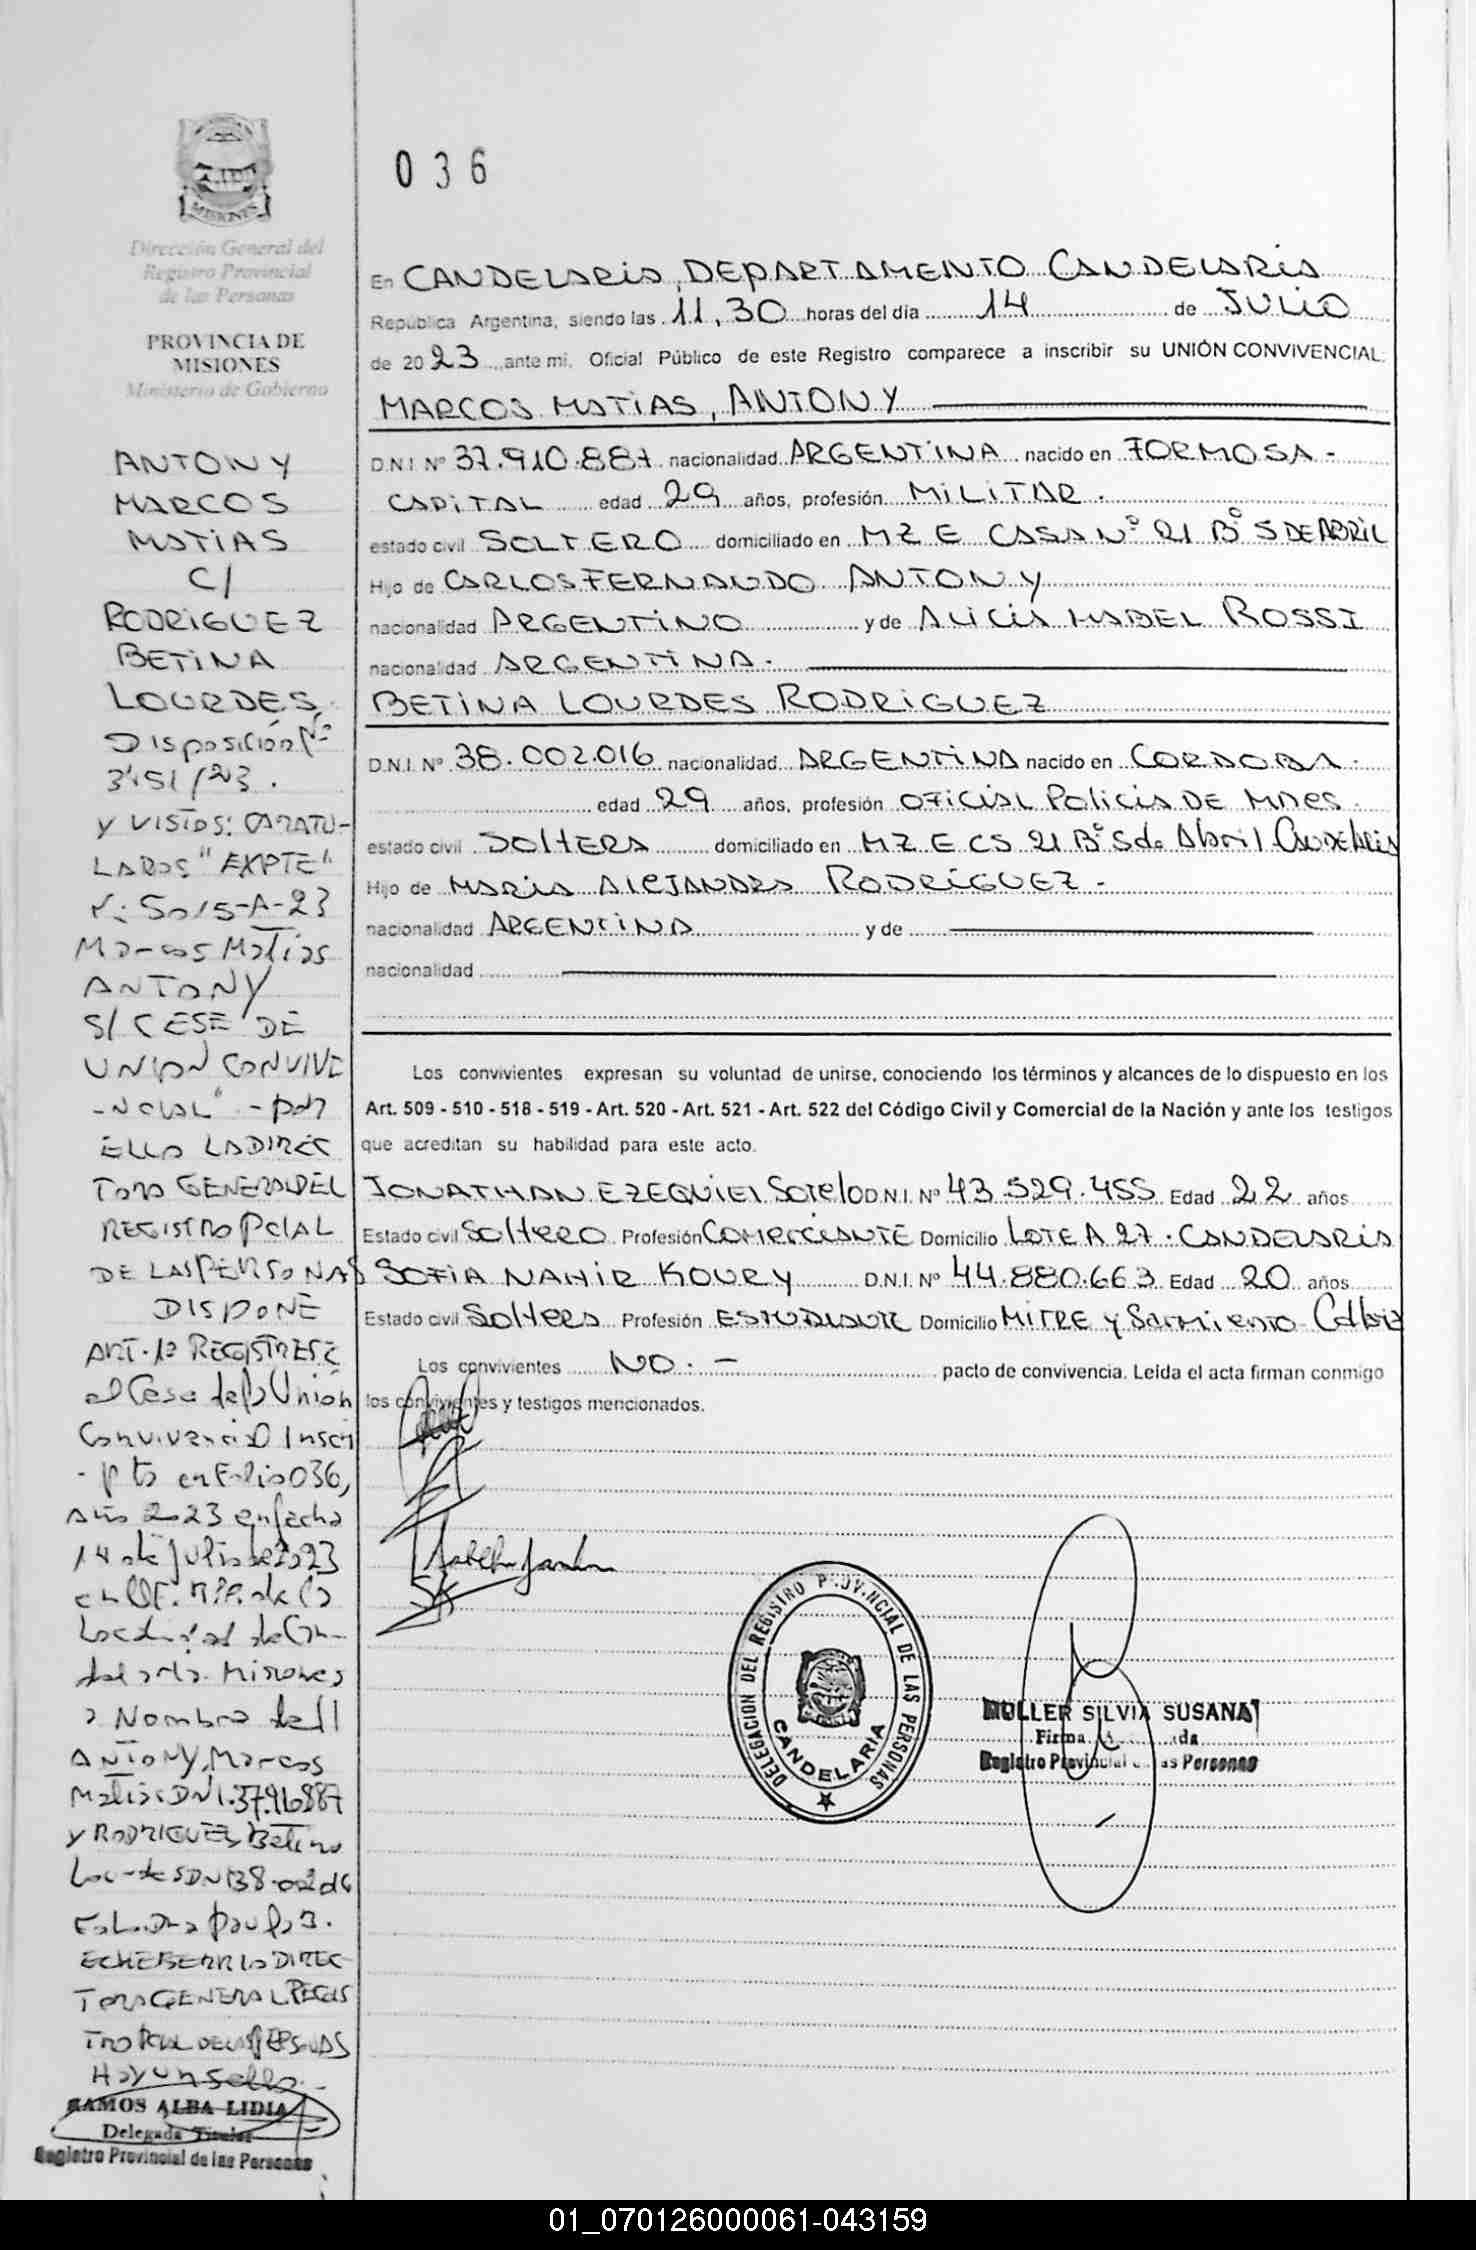 036
MISIONES
Dirección General del
Registro Provincial
de las Personas
PROVINCIA DE
MISIONES
Ministerio de Gobierno
ANTONY
MARCOS
MATIAS
C/
RODRIGUEZ
BETINA
LOURDES
Disposición Nº
3451/23.
y VISTOS: CARATU-
LADOS "EXPTE"
Nº: 5015-A-23
Marcos Matías
ANTONY
S/ CESE DE
UNION CONVIVE
-NCIAL" - por
ELLO LA DIREC
TORA GENERAL DEL
REGISTRO PCIAL
DE LAS PERSONAS
DISPONE
ART-1º REGISTRESE
el Cese de la Unión
Convivencial Inscri
-pta en Folio 036,
Año 2023 en fecha
14 de julio de 2023
en Of. de la
Localidad de Can-
delaria. Misiones
a Nombre de
ANTONY, Marcos
Matías DNI. 37.910.887
y RODRIGUEZ, Betina
Lourdes DNI 38.002.016
Fdo. Dra Paula B.
ECHEBERRIA DIREC-
TORA GENERAL REGIS
TRO PCIAL DE LAS PERSONAS
Hay un sello.
RAMOS ALBA LIDIA
Delegada Titular
Registro Provincial de las Personas
En CANDELARIA, DEPARTAMENTO CANDELARIA
República Argentina, siendo las 11,30 horas del día 14 de JULIO
de 2023 ante mi, Oficial Público de este Registro comparece a inscribir su UNIÓN CONVIVENCIAL:
MARCOS MATIAS, ANTONY
D.N.I. Nº 37.910.887 nacionalidad ARGENTINA nacido en FORMOSA -
CAPITAL edad 29 años, profesión MILITAR.
estado civil SOLTERO domiciliado en MZ E CASA Nº 21 Bº 5 DE ABRIL
Hijo de CARLOS FERNANDO ANTONY
nacionalidad ARGENTINO y de ALICIA MABEL ROSSI
nacionalidad ARGENTINA.
BETINA LOURDES RODRIGUEZ
D.N.I. Nº 38.002.016 nacionalidad ARGENTINA nacido en CORDOBA.
edad 29 años, profesión OFICIAL POLICIA DE MNES.
estado civil SOLTERA domiciliado en MZ E CS 21 Bº 5 de Abril CANDELARIA
Hijo de MARIA ALEJANDRA RODRIGUEZ -
nacionalidad ARGENTINA y de
nacionalidad
Los convivientes expresan su voluntad de unirse, conociendo los términos y alcances de lo dispuesto en los
Art. 509 - 510 - 518 - 519 - Art. 520 - Art. 521 - Art. 522 del Código Civil y Comercial de la Nación y ante los testigos
que acreditan su habilidad para este acto.
JONATHAN EZEQUIEL Sotelo D.N.I. Nº 43.529.455 Edad 22 años
Estado civil SOLTERO Profesión COMERCIANTE Domicilio LOTE A 27 - CANDELARIA
SOFIA NAHIR KOURY D.N.I. Nº 44.880.663 Edad 20 años
Estado civil SOLTERA Profesión ESTUDIANTE Domicilio MITRE y Sarmiento - Cdlaria
Los convivientes NO. - pacto de convivencia. Leída el acta firman conmigo
los convivientes y testigos mencionados.
DELEGACION DEL REGISTRO PROVINCIAL DE LAS PERSONAS
CANDELARIA
MULLER SILVIA SUSANA
Firma
Registro Provincial de las Personas
01_070126000061-043159